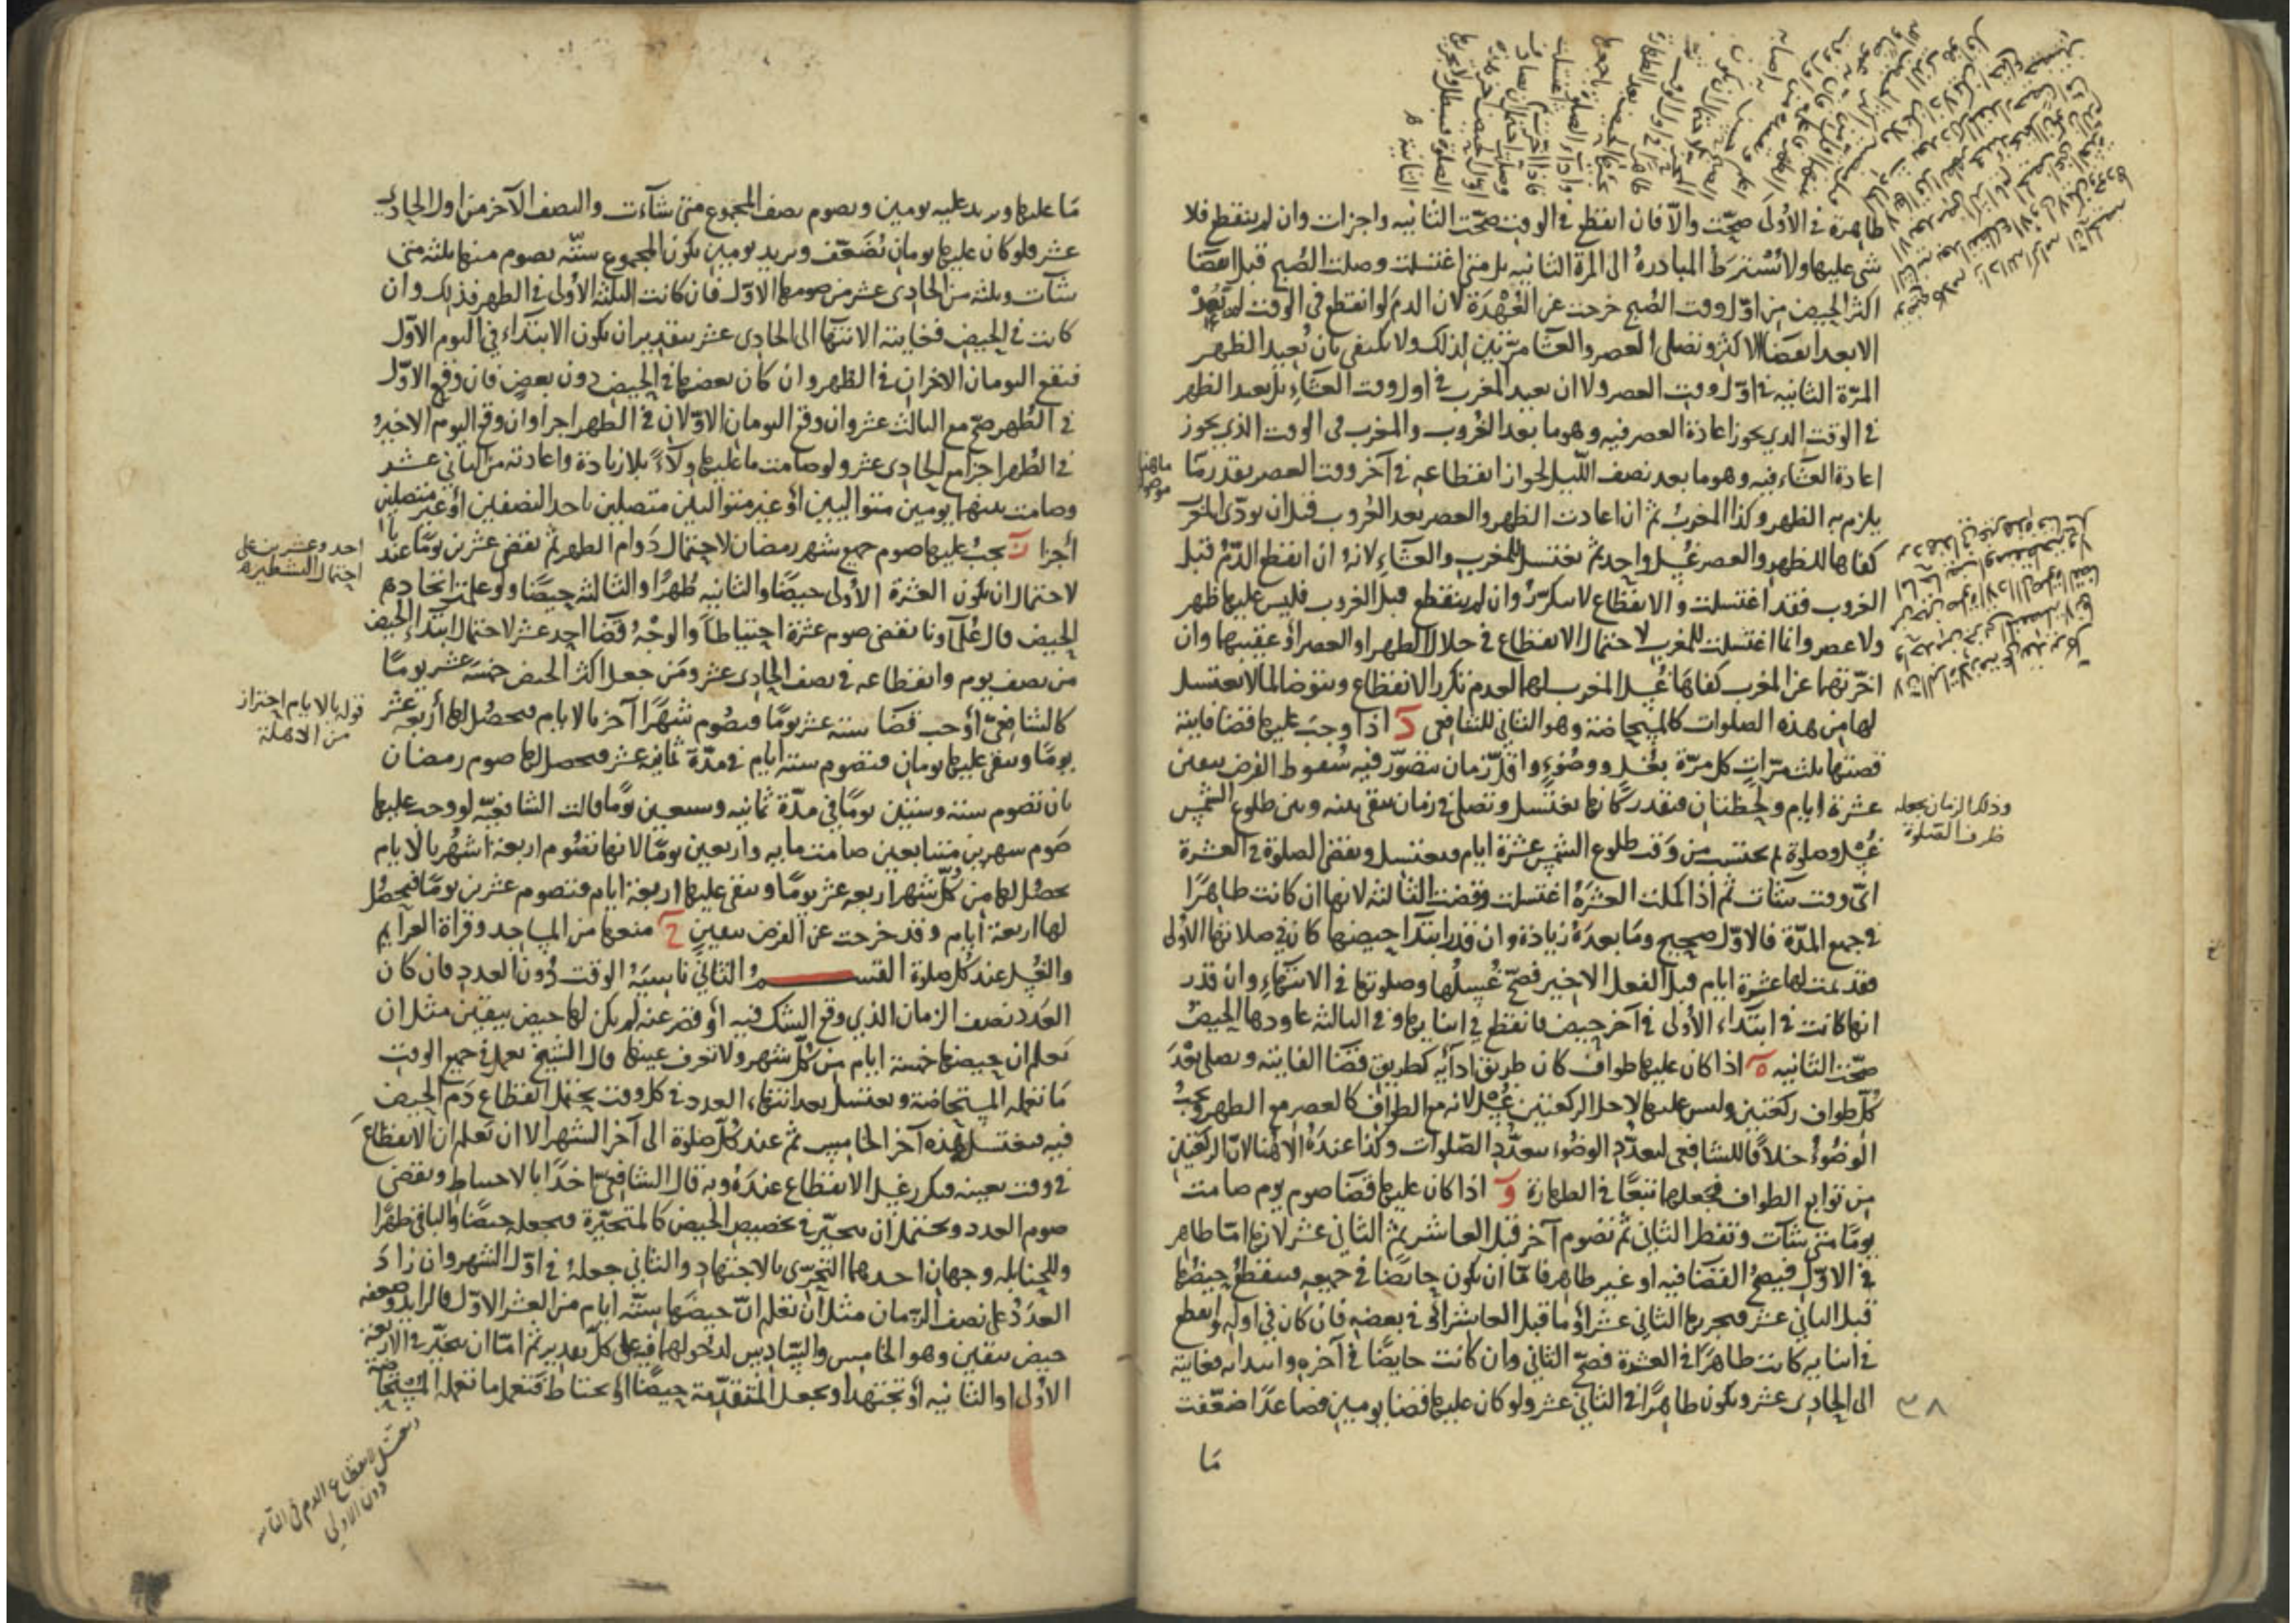 طاهرة في الأولى صحّت والّا فان انقطع في الوقت صحّت الثانيه واجزات وان لم ينقطع فلا
شي عليها ولا يُشترط المبادرة الى المرة الثانيه بل متى اغتسلت وصلت الصُبح قبل انقضا
اكثر الحيض من اوّل وقت الصُبح خرجت عن العُهدة لان الدم لو انقطع في الوقت لم يَعُدْ
الا بعد انقضا الاكثر وتصلى العصر والعشا مرّتين لذلك ولا يكتفى بان تُعيد الظهر
المرّة الثانيه في اوّل وقت العصر ولا ان تعيد المغرب في اول وقت العشاء بل تعيد الظهر
في الوقت الذي يجوز اعادة العصر فيه وهو ما بعد الغروب والمغرب في الوقت الذي يجوز
اعادة العشاء فيه وهو ما بعد نصف اللّيل لجواز انقطاعه في آخر وقت العصر بقدر مَا
يلزم به الظهر وكذا المغربُ ثم ان اعادت الظهر والعصر بعد الغروب قبل ان تودّى المغرب
كفاها للظهر والعصر غُسل واحد ثم تغتسل للمغرب والعشاء لانهُ ان انقطع الدّمُ قبل
الغروب فقد اغتسلت والانقطاع لا يتكرّرُ وان لم ينقطع قبل الغروب فليس عليها ظهر
ولا عصر وانما اغتسلت للمغرب لاحتمال الانقطاع في خلال الظهر او العصر أو عقيبهما وان
اخّرتهما عن المغرب كفاهَا غُسل المغرب لهما لعدم تكرر الانقطاع وتتوضا لما لا تغتسل
لها من هذه الصلوات كالمستحاضة وهو الثاني للشافعي د اذا وجبَ عليها قضا فايتة
قضتها ثلث مرّات كل مرّة بغُسل ووضوء واقلّ زمان يتصوّر فيه سُقوط الفرض بيقين
عشرة ايام ولحظتان فنقدر كانها تغتسل وتصلى في زمان يبقى بينه وبين طلوع الشمس
غُسل وصلوة ثم تحتسب من وَقت طلوع الشمس عشرة ايام فتغتسل وتقضى الصلوة في العشرة
اىّ وقت شآت ثم اذا كملت العشرةُ اغتسلت وقضت الثالثة لانها ان كانت طاهرًا
في جميع المدّة فالاوّل صحيح ومَا بعدهُ زيادة وان قدر ابتدآ حيضها كان في صلاتها الأولى
فقد تمت لها عشرة ايام قبل الفعل الاخير فصحّ غُسلُها وصلوتها في الانتهاء وان قدر
انها كانت في ابتداء الأولى في آخر حيض فانقطع في اثنايها وفي الثالثة عاودها الحيضُ
صحّت الثانيه ه اذا كان عليها طواف كان طريق ادآيُه كطريق قضا الفايتة وتصلى بعْدَ
كُلّ طواف ركعتين وليس عليها لاجل الركعتين غُسل لانه مع الطواف كالعصر مع الظهر ويجبُ
الوضُوءُ خلافًا للشافعي لتعدّد الوضُوء بتعدّد الصّلوات وكذا عندهُ الا هُنا لانّ الركعتين
من توابع الطواف فجعلها تبعًا في الطهارة و اذا كان عليها قضا صوم يوم صامت
يومًا متى شآت وتفطر الثاني ثم تصوم آخر قبل العاشر ثم الثاني عشر لانها امّا طاهر
في الاوّل فيصحُّ القضا فيه او غير طاهر فامّا ان تكون حايضًا في جميعه فينقطعُ حيضُها
قبل الثاني عشر فيجزيها الثاني عشر أو ما قبل العاشر أو في بعضه فان كان في اوله وانقطع
في اثنايه كانت طاهرًا في العشرة فصحّ الثاني وان كانت حايضًا في آخره وابتدا به فغايتهُ
الى الحادى عشر وتكون طاهرًا في الثاني عشر ولو كان عليها قضا يومين فصاعدًا ضعّفت
مَا
ماهنا
موصول
وذلك الزمان نجعله
ظرف الصّلوة
٣٨
مَا عليها وتزيد عليه يومين وتصوم نصف المجموع متى شآءت والنصف الآخر من اول الحادى
عشر فلو كان عليها يومان تُضَعّف وتزيد يومين يكون المجموع ستّه تصوم منها ثلثه متى
شآت وثلثه من الحادى عشر من صومها الاوّل فان كانت الثلثة الأولى في الطهر فذلك وان
كانت في الحيض فغايته الانتهآ الى الحادى عشر بتقدير ان يكون الابتداء في اليوم الاوّل
فيقع اليومان الاخران في الطهر وان كان بعضها في الحيض دون بعض فان وقع الاوّل
في الطُهر صحّ مع الثالث عشر وان وقع اليومان الاوّلان في الطهر اجزا وان وقع اليوم الاخيرُ
في الطُهر اجزآ مع الحادى عشر ولو صامت ما عليها ولآءً بلا زيادة واعادته من الثاني عشر
وصامت بينهما يومين متواليين أو غير متواليين متصلين باحد النصفين أو غير متصلين
أجزا ز يجبُ عليها صوم جميع شهر رمضان لاحتمال دَوام الطهر ثم تقضى عشرين يومًا عندنا
لاحتمال ان تكون العشرة الأولى حيضًا والثانيه طُهرًا والثالثه حيضًا ولو علمت اتحاد دم
الحيض قال عُلمآونا تقضى صوم عشرة احتياطًا والوجهُ قضا احد عشر لاحتمال ابتداء الحيض
من نصف يوم وانقطاعه في نصف الحادى عشر ومَن جعل اكثر الحيض خمسَة عشر يومًا
كالشافعىّ أوجب قضا ستة عشر يومًا فتصُوم شهرًا آخر بالايام فيحصُل لها أربعة عشر
يومًا ويبقى عليها يومان فتصوم ستة ايام في مدّة ثمانية عشر فيحصل لها صوم رمضان
بان تصوم ستة وستين يومًا في مدّة ثمانيه وسبعين يومًا قالت الشافعيّه لو وجب عليها
صَوم شهرين متتابعين صامت مايه واربعين يومًا لانها تصوم اربعة أشهُر بالايام
يحصُل لها من كُلّ شهر اربعه عشر يومًا ويبقى عليها اربعة ايام فتصوم عشرين يومًا فيحصُل
لها اربعة أيام وقد خرجت عن الفرض بيقين ح منعها من المساجد وقراة العزآيم
والغُسل عند كُل صلوة القســـمُ الثاني ناسيَةُ الوقت دُون العدد فان كان
العَدَد نصف الزمان الذي وقع الشك فيه أو قصر عنه لم يكن لها حيض بيقين مثل ان
تَعلم ان حيضها خمسة ايام من كُلّ شهر ولا تعرف عينها قال الشيخ تعمل في جميع الوقت
مَا تعمله المستحاضة وتغتسل بعد انتهاء العدد في كل وقت يحتمل انقطاع دَم الحيض
فيه فتغتسل هذه آخر الخامس ثم عند كُلّ صلوة الى آخر الشهر الا ان تَعلم ان الانقطاعَ
في وقت بعينه فيتكرر غسل الانقطاع عندَهُ وبه قال الشافعىّ اخذًا بالاحتياط وتقضى
صوم العدد ويحتمل أن تتخيّر في تخصيص الحيض كالمتحيّرة فتجعله حيضًا والباقي طهرًا
وللحنابله وجهان احدهما التحرّى بالاجتهاد والثاني جعلهُ في اوّل الشهر وان زادَ
العدَدُ على نصف الزّمان مثل أن تعلم انّ حيضها ستّه ايام من العشر الاوّل فالزايد وضعفه
حيض بيقين وهو الخامس والسّادس لدخولهما فيه على كلّ تقدير ثم امّا ان تتخيّر في الاربعة
الأولى او الثانيه أو تجتهد او تجعل المتقدّمة حيضًا أو تحتاط فتعمل ما تعمله المستحاضة
احد وعشرين على
احتمال التشطير
قوله بالايام احتراز
من الاهلة
وتغتسل لانقطاع الدم في الثانية
دون الاولى